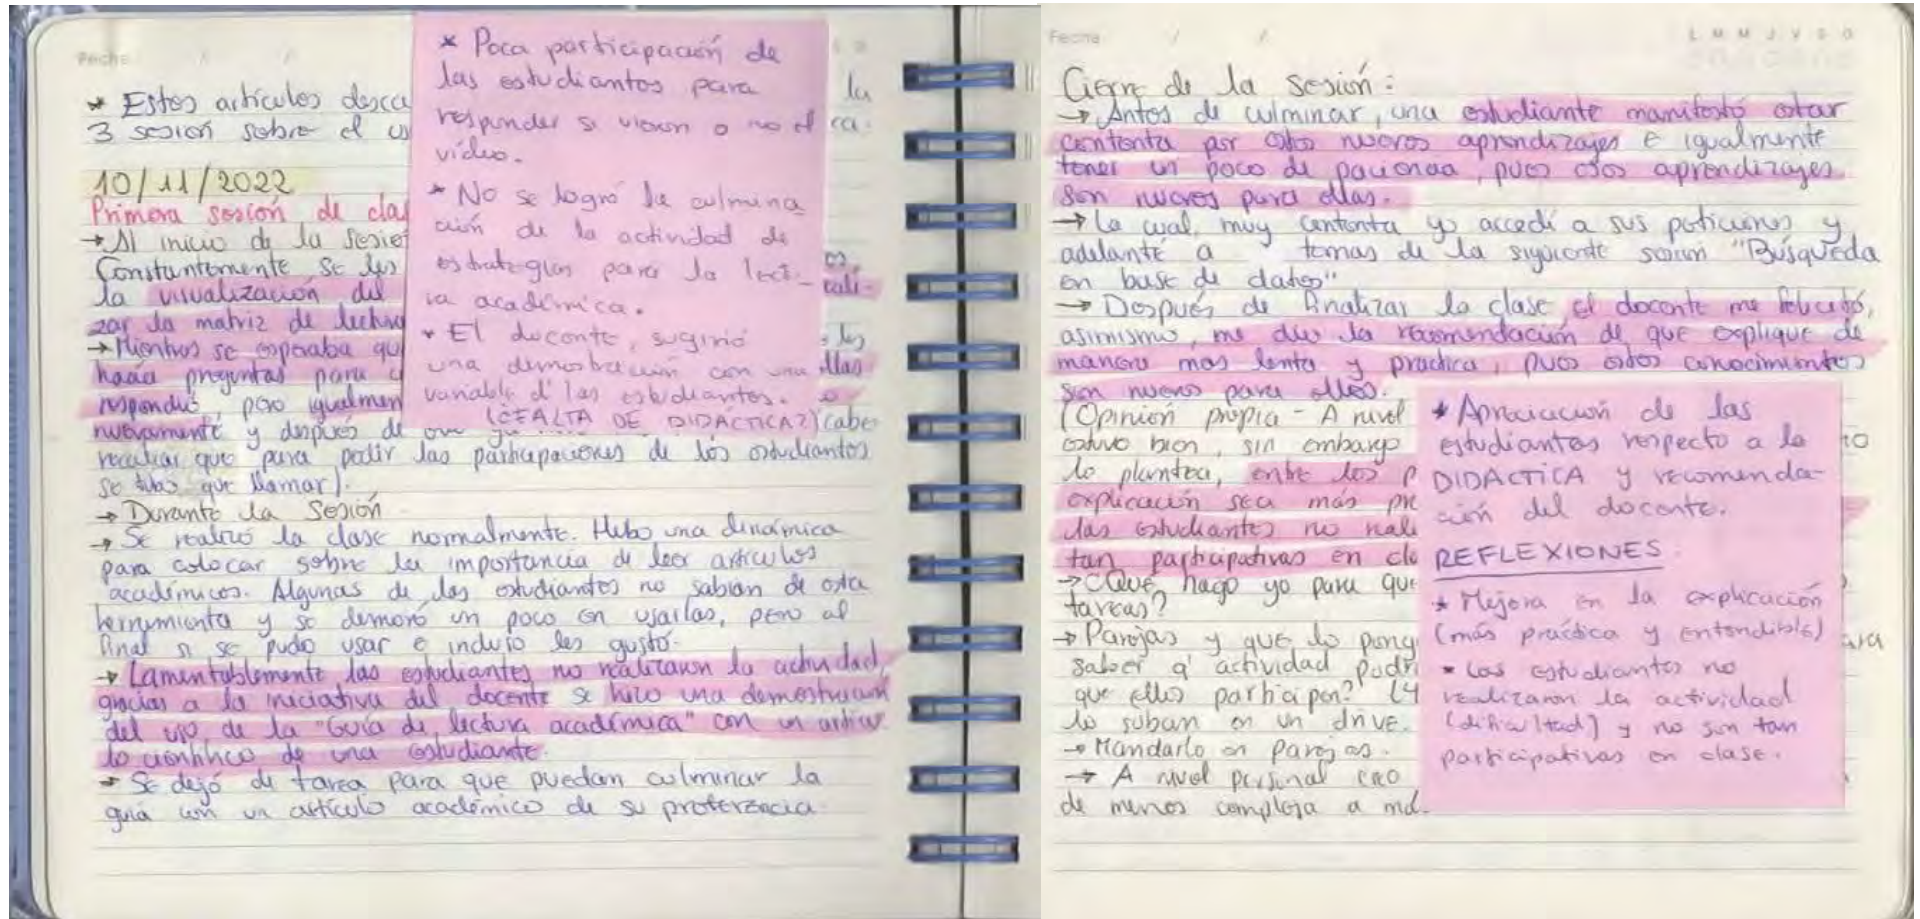 Fecha / /
* Estos artículos desca
la
3 sesión sobre el us
ca.
10/11/2022
Primera sesión de clas
→ Al inicio de la sesió
Constantemente se les
os,
la visualización del
cali-
zar la matriz de lectura
→ Mientras se esperaba qu
les
hacía preguntas para
ellas
respondió, pero igualmen
nuevamente y después de que
(cabe
recalcar que para pedir las participaciones de los estudiantes
se tubo que llamar).
→ Durante la Sesión
→ Se realizó la clase normalmente. Hubo una dinámica
para colocar sobre la importancia de leer artículos
académicos. Algunas de las estudiantes no sabían de esta
herrymienta y se demoró un poco en usarlas, pero al
final si se pudo usar e incluso les gustó.
→ Lamentablemente las estudiantes no realizaron la actividad,
gracias a la iniciativa del docente se hizo una demostración
del uso de la "Guía de lectura académica" con un artícu
lo científico de una estudiante.
→ Se dejó de tarea para que puedan culminar la
guía con un artículo académico de su preferencia.
* Poca participación de
las estudiantes para
responder si vieron o no el
vídeo.
* No se logró la culmina
ción de la actividad de
estrategias para la lect-
ura académica.
* El docente, sugirió
una demostración con una
variable d' las estudiantes.
(¿FALTA DE DIDÁCTICA?)
Fecha / /
L M M J V S D
Cierre de la sesión:
→ Antes de culminar, una estudiante manifestó estar
contenta por estos nuevos aprendizajes e igualmente
tener un poco de paciencia, pues esos aprendizajes
son nuevos para ellas.
→ Lo cual, muy contenta yo accedí a sus peticiones y
adelanté a temas de la siguiente sesión "Búsqueda
en base de datos"
→ Después de finalizar la clase, el docente me felicitó,
asimismo, me dio la recomendación de que explique de
manera mas lenta y practica, pues estos conocimientos
son nuevos para ellos.
(Opinión propia - A nivel
estuvo bien, sin embargo
lo plantea, entre los p
explicación sea más pr
las estudiantes no reali
tan participativas en cla
→ ¿Qué hago yo para que
tareas?
→ Parejas y que lo pong
saber q' actividad podri
que ellos participen? (4
lo suban en un drive.
→ Mandarlo en parejas.
→ A nivel personal creo
de menos compleja a má
* Apreciación de las
estudiantes respecto a la
DIDÁCTICA y recomenda-
ción del docente.
REFLEXIONES
* Mejora en la explicación
(más práctica y entendible)
* Las estudiantes no
realizaron la actividad
(dificultad) y no son tan
participativas en clase.